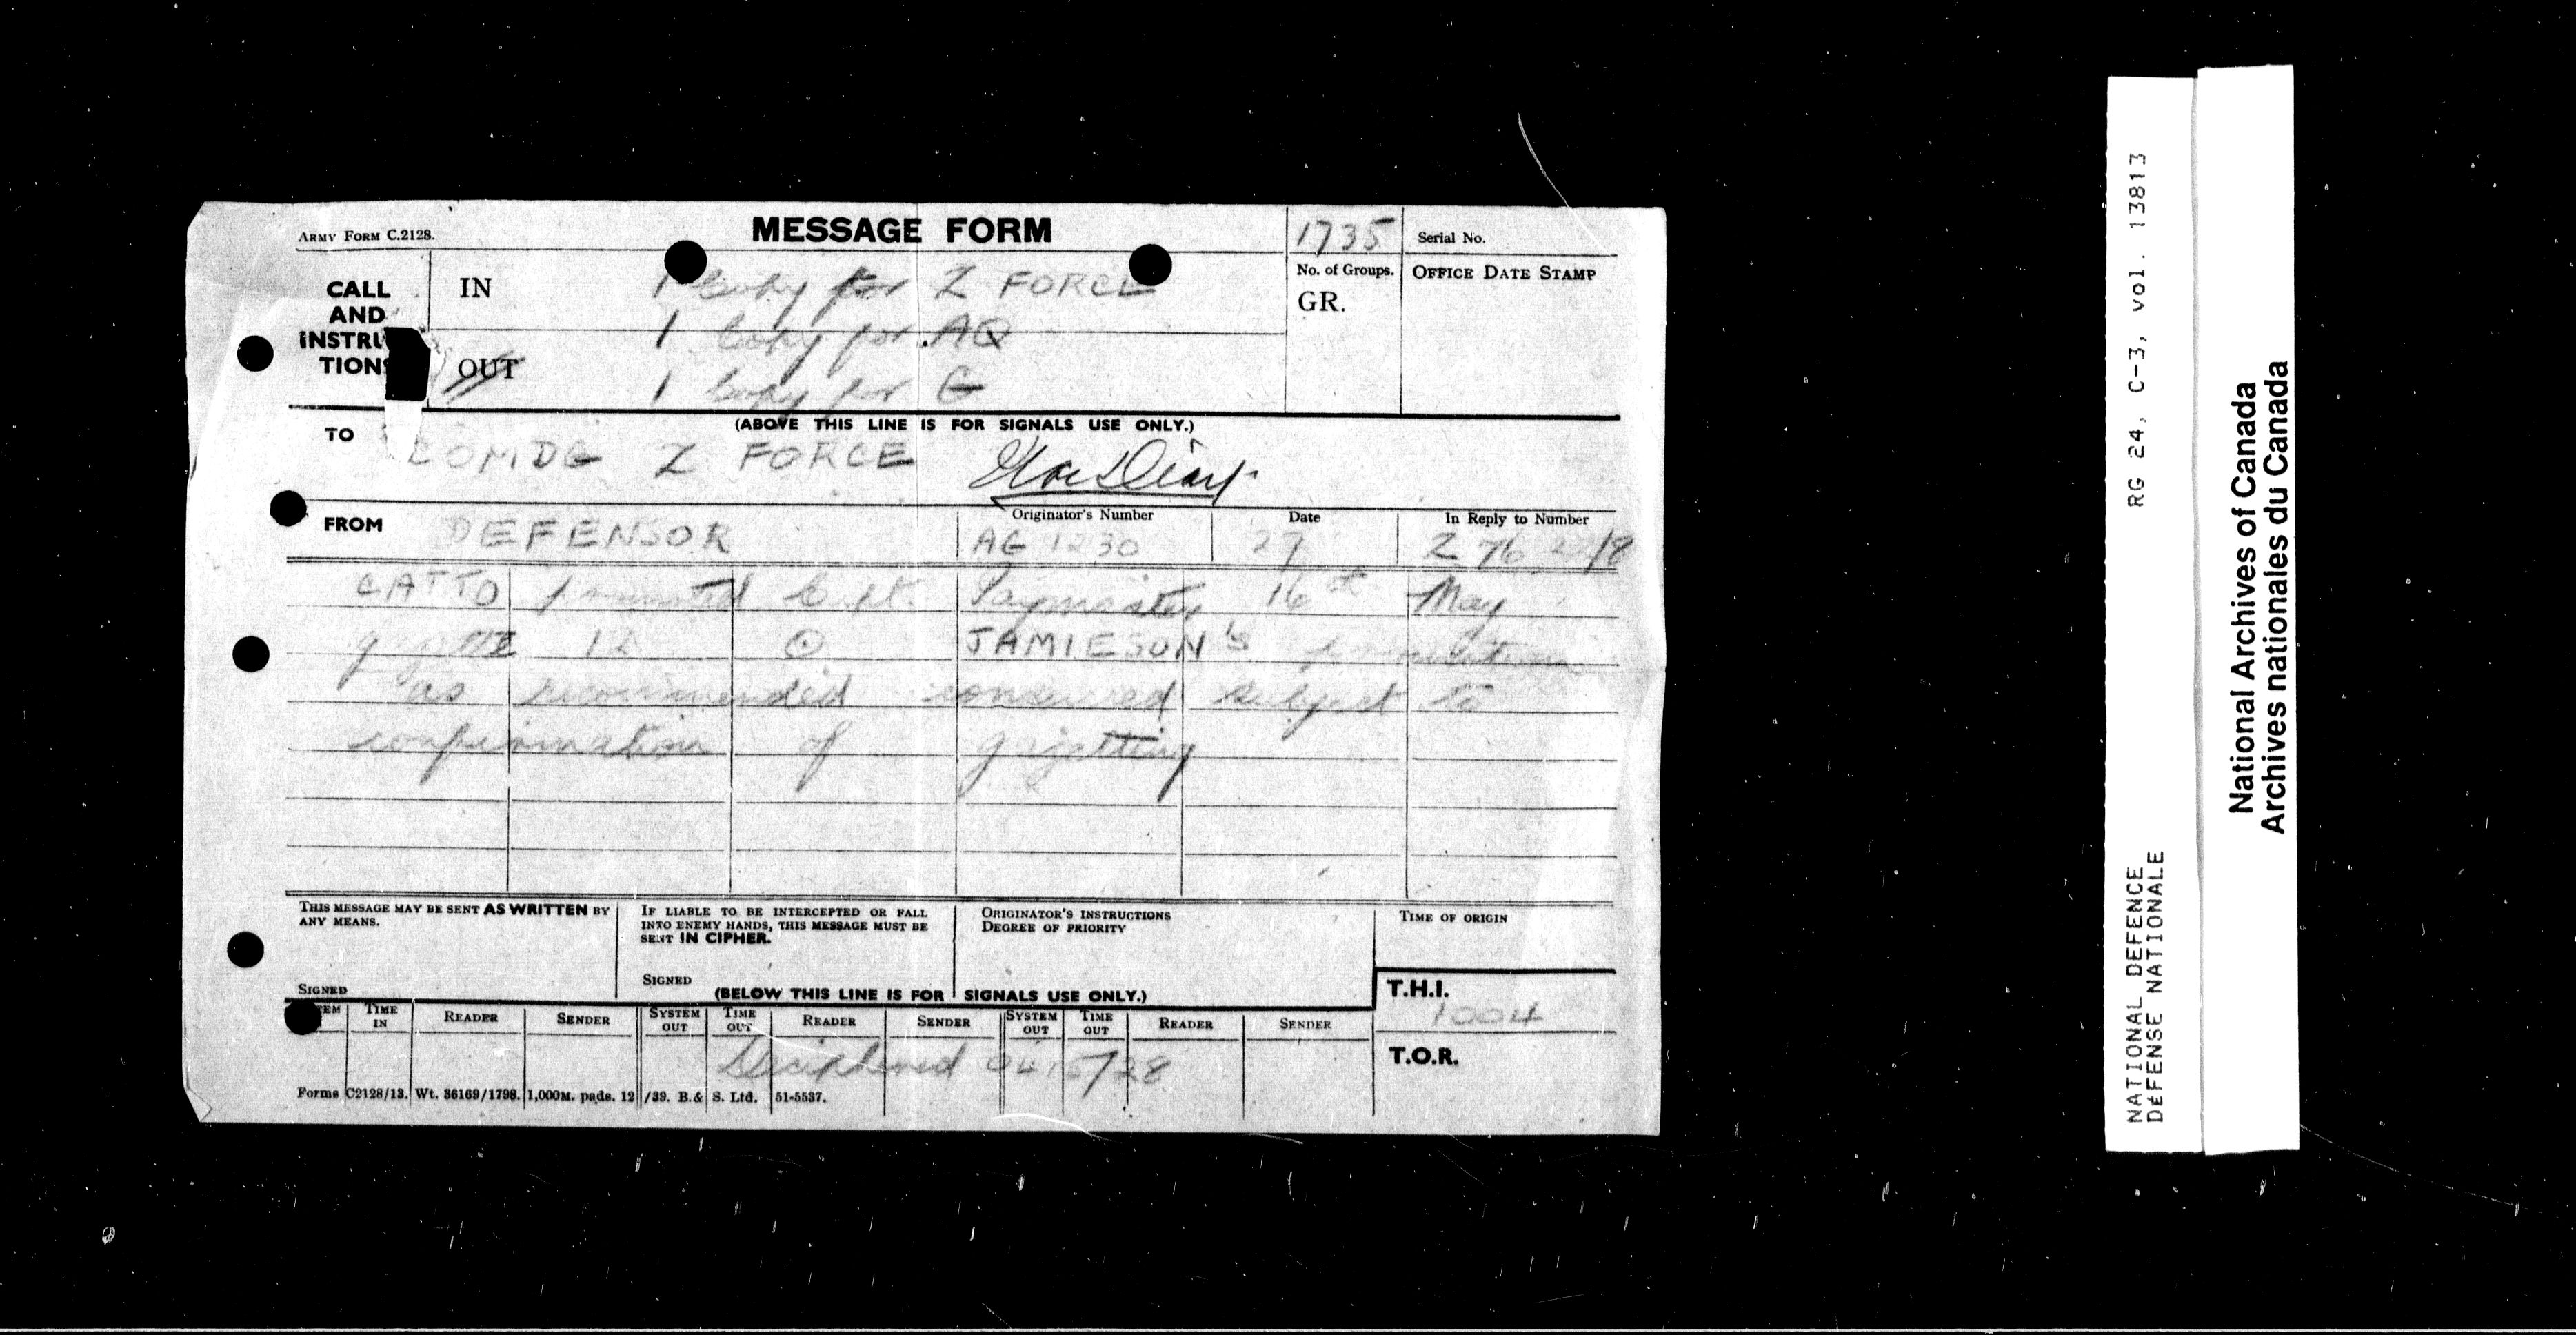 ARMY FORM C.2128.
MESSAGE FORM
1735
Serial No.
CALL AND INSTRUCTIONS
IN
1 Copy for Z FORCE
1 Copy for AQ
OUT
1 Copy for G
No. of Groups.
GR.
OFFICE DATE STAMP
(ABOVE THIS LINE IS FOR SIGNALS USE ONLY.)
TO
COMDG Z FORCE War Diary
FROM
DEFENSOR
Originator's Number
AG 1230
Date
27
In Reply to Number
Z 76 /8
CATTO promoted Capt. Paymaster 16 May
gazette 12 JAMIESON's
as recommended concurred subject to
confirmation of gazetting
THIS MESSAGE MAY BE SENT AS WRITTEN BY
ANY MEANS.
SIGNED
IF LIABLE TO BE INTERCEPTED OR FALL
INTO ENEMY HANDS, THIS MESSAGE MUST BE
SENT IN CIPHER.
SIGNED
ORIGINATOR'S INSTRUCTIONS
DEGREE OF PRIORITY
TIME OF ORIGIN
(BELOW THIS LINE IS FOR SIGNALS USE ONLY.)
T.H.I.
1004
TIME IN READER SENDER SYSTEM OUT TIME OUT READER SENDER SYSTEM OUT TIME OUT READER SENDER
T.O.R.
Deciphered 0415/28
Forms C2128/13. Wt. 36169/1798. 1,000M. pads. 12/39. B.& S. Ltd. 51-5537.
RG 24, C-3, vol. 13813
NATIONAL DEFENCE
DÉFENSE NATIONALE
National Archives of Canada
Archives nationales du Canada